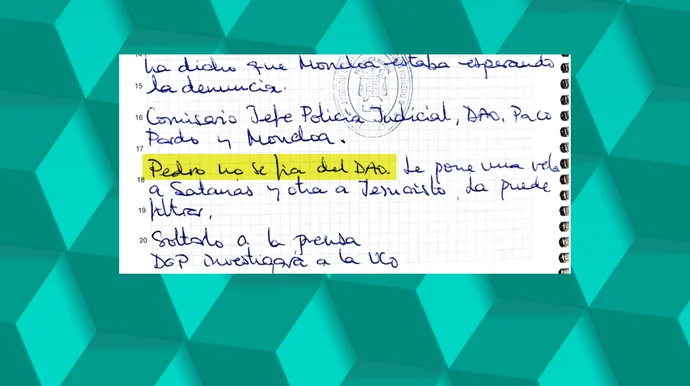 ha dicho que Mondoa estaba esperando
15
la denuncia.
16 Comisario Jefe Policía Judicial, DAO, Paco
Pardo y Mondoa.
17
Pedro no se fia del DAO. Le pone una vela
18
a Satanás y otra a Jesucristo. La puede
19
filtrar.
20 Soltarlo a la prensa
DGP investigará a la UCO